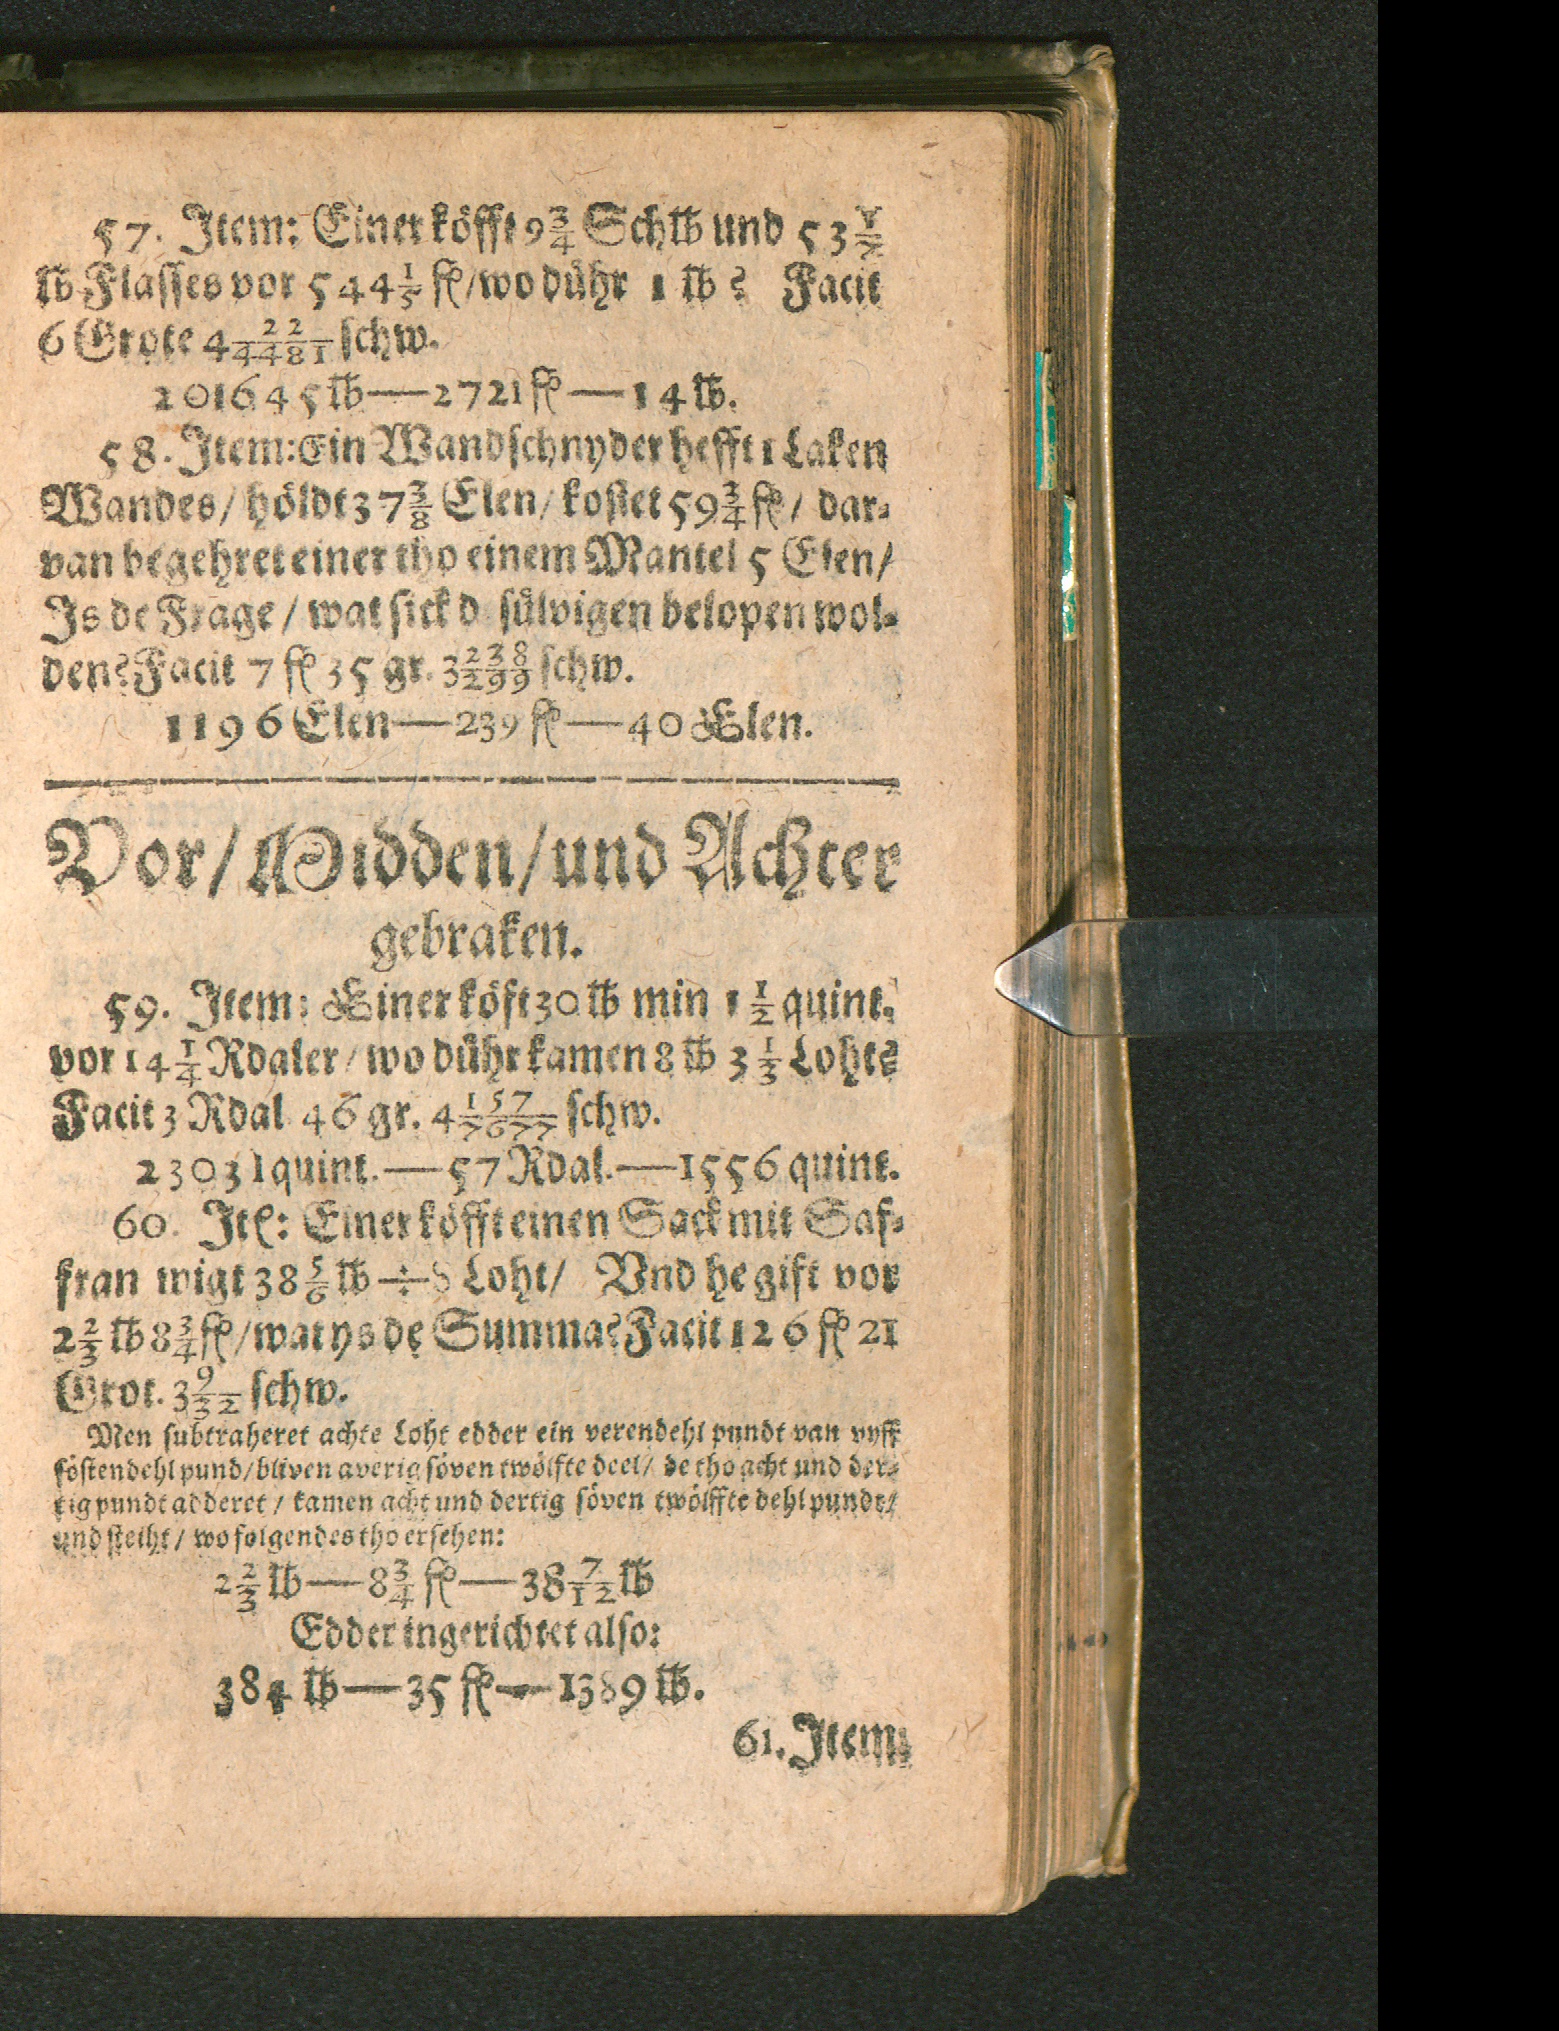 57. Item: Einer köfft 9 3/4 Schlb und 53 1/7
lb Flasses vor 544 1/5 fl/wo dühr 1 lb? Facit
6 Grote 4 22/4481 schw.
201645 lb—2721 fl—14 lb.
58. Item: Ein Wandschnyder hefft 1 Laken
Wandes/ höldt 37 3/8 Elen/ kostet 59 3/4 fl/ dar-
van begehret einer tho einem Mantel 5 Elen/
Is de Frage/ wat sick d sülvigen belopen wol-
den? Facit 7 fl 35 gr. 3 238/299 schw.
1196 Elen—239 fl—40 Elen.
Vor/ Midden/ und Achter
gebraken.
59. Item: Einer köft 30 lb min 1 1/2 quint.
vor 14 1/4 Rdaler/ wo dühr kamen 8 lb 3 1/3 Loht?
Facit 3 Rdal 46 gr. 4 157/7677 schw.
23031 quint.—57 Rdal.—1556 quint.
60. Itē: Einer köfft einen Sack mit Saf-
fran wigt 38 5/6 lb ÷ 8 Loht/ Vnd he gift vor
2 2/3 lb 8 3/4 fl/ wat ys de Summa? Facit 126 fl 21
Grot. 3 9/32 schw.
Men subtraheret achte Loht edder ein verendehl pundt van vyff
söstendehl pund/ bliven averig söven twölfte deel/ de tho acht und der-
tig pundt adderet/ kamen acht und dertig söven twölffte dehl pundt/
und steiht/ wo folgendes tho ersehen:
2 2/3 lb—8 3/4 fl—38 7/12 lb
Edder ingerichtet also:
384 lb—35 fl—1389 lb.
61. Item: